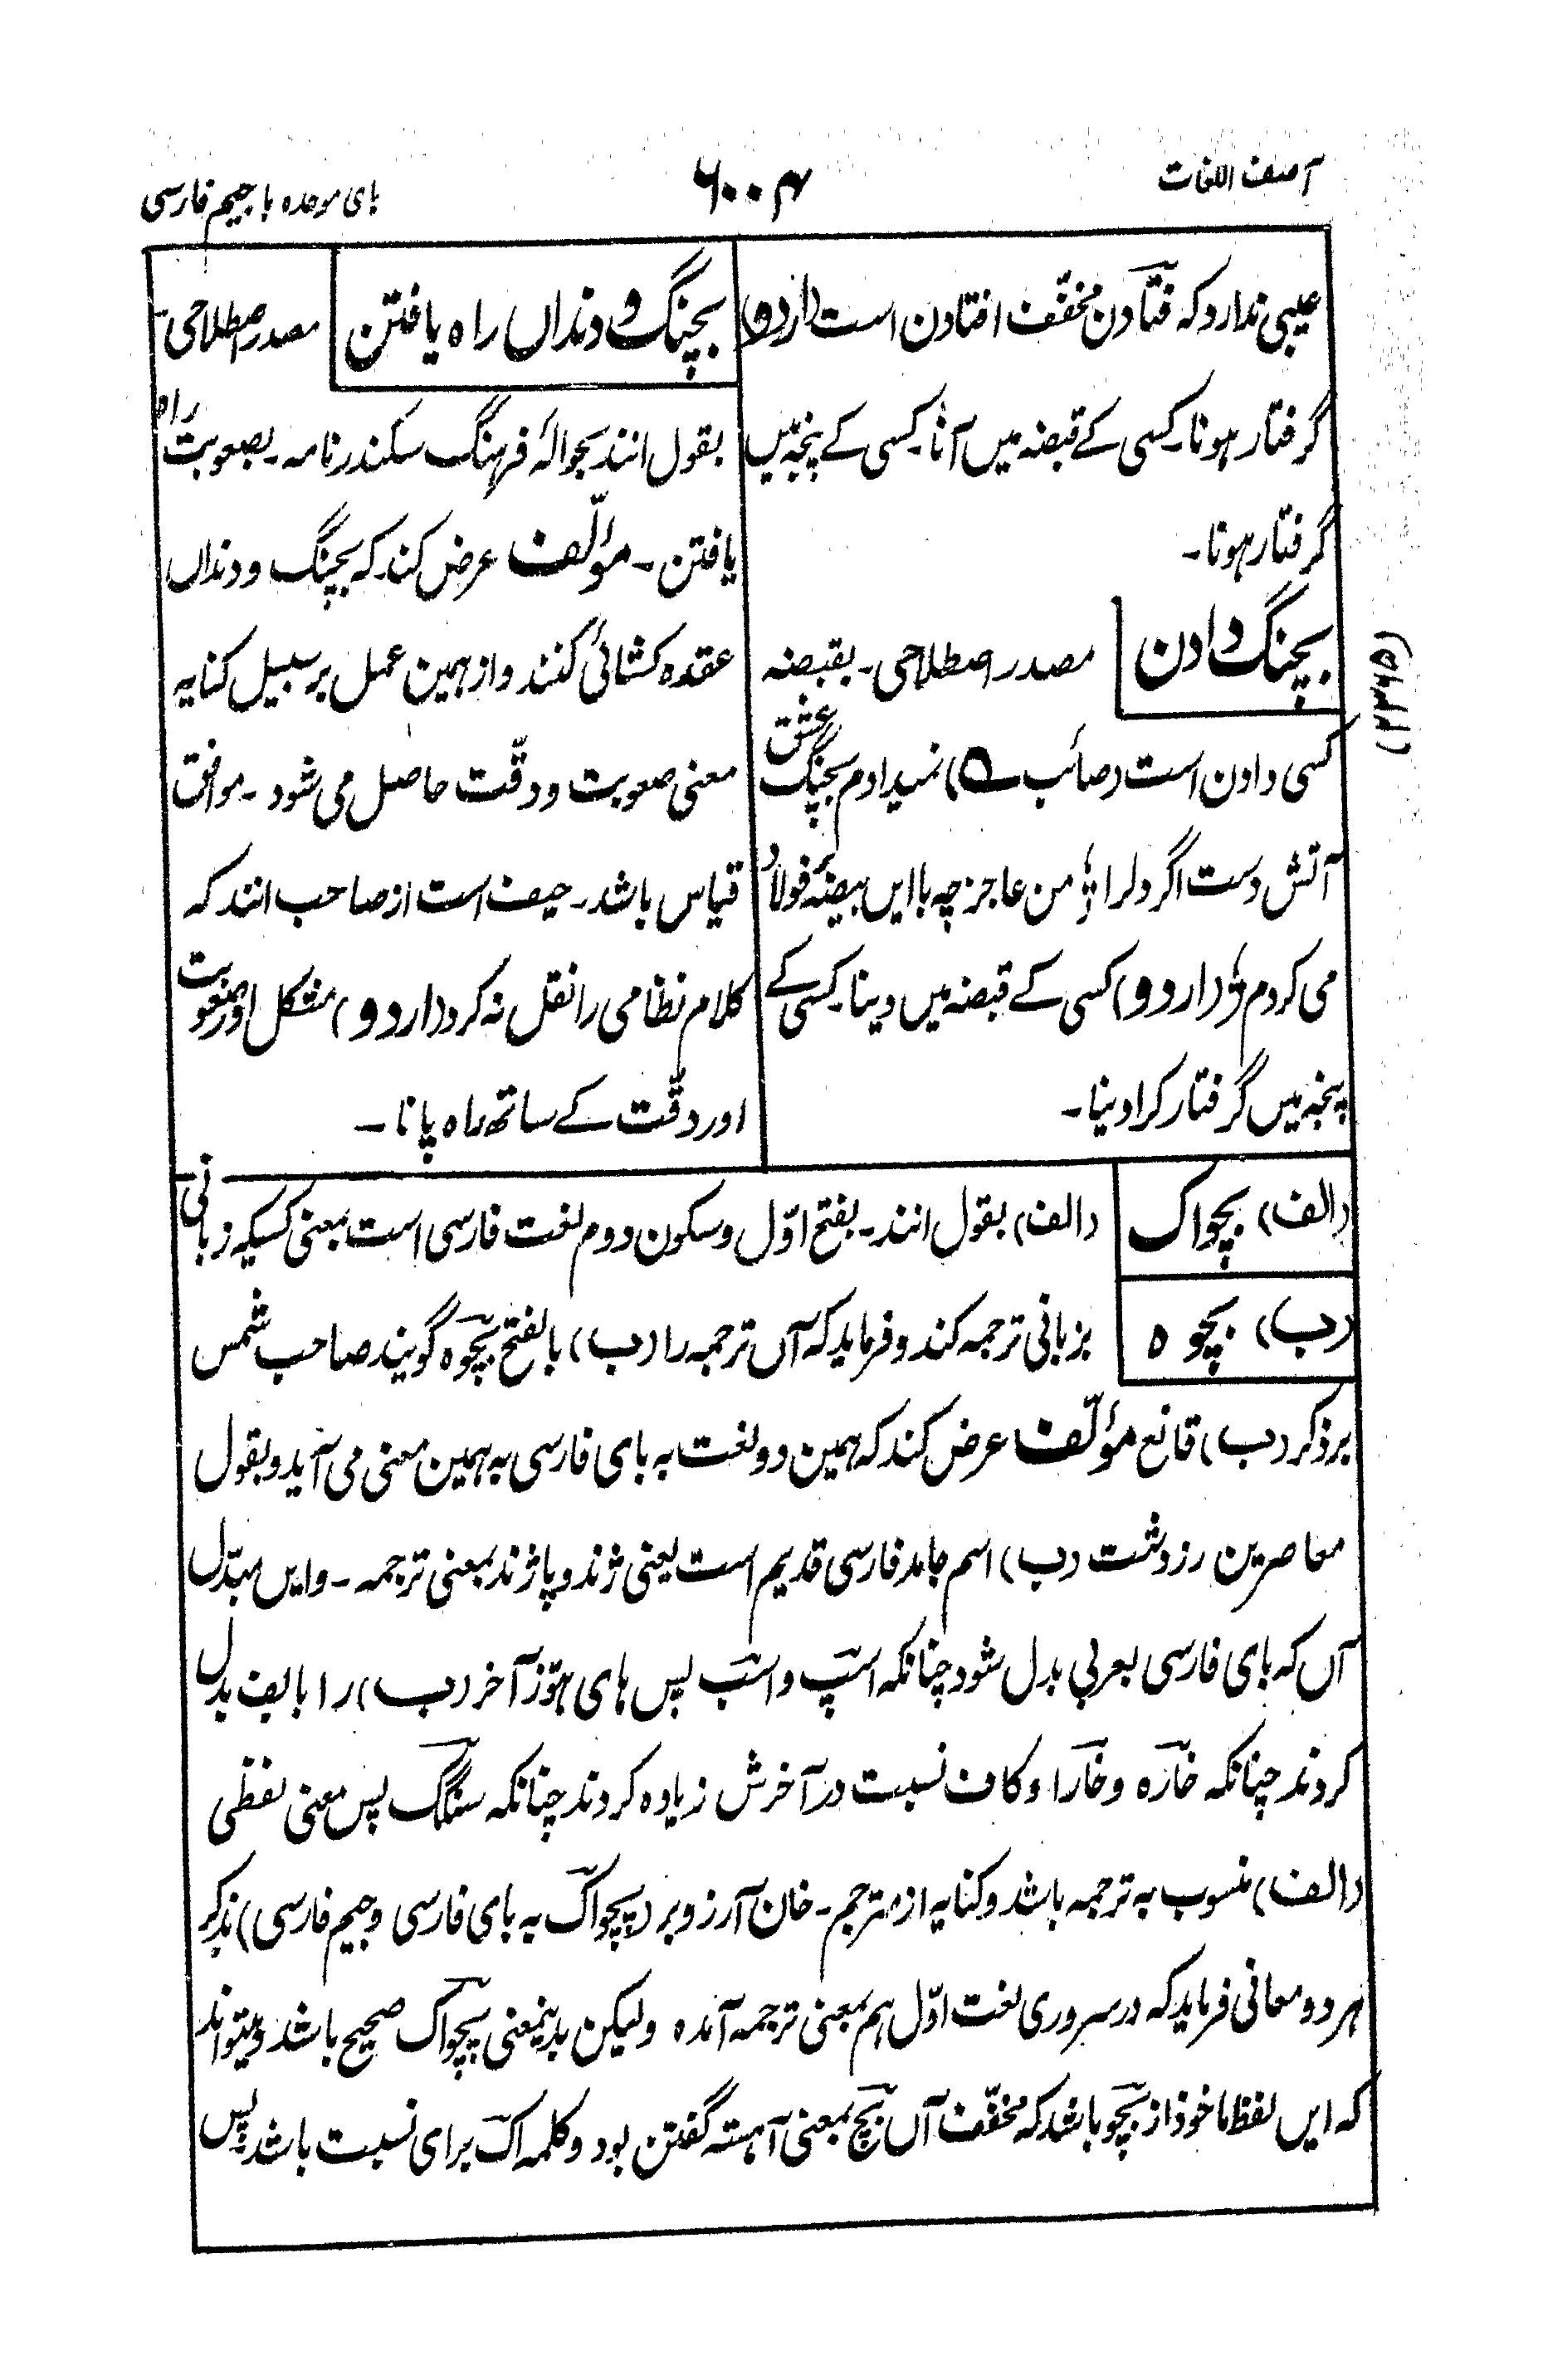 آصف اللغات
۶۰۰۴
بای موحده با جیم فارسی
عیبی ندارد که فتادن مخفّف افتادن است (اردو)
گرفتار ہونا۔ کسی کے قبضہ میں آنا۔ کسی کے پنجہ میں
گرفتار ہونا۔
بچنگ دادن مصدر اصطلاحی۔ بقبضہ
کسی دادن است (صائب ؎) نمیدادم بچنگ عشق
آتش دست اگر دل را ؛ من عاجز چہ با ایں بیضۂ فولاد
می کردم ؛ (اردو) کسی کے قبضہ میں دینا۔ کسی کے
پنجہ میں گرفتار کرا دینا۔
بچنگ و دنداں راہ یافتن مصدر اصطلاحی۔
بقول انند بحوالۂ فرہنگ سکندرنامہ۔ بصعوبت راہ
یافتن۔ مؤلّف عرض کند کہ بچنگ و دنداں
عقدہ کشائی کنند و از ہمین عمل بر سبیل کنایہ
معنی صعوبت و دقّت حاصل می شود۔ موافق
قیاس باشد۔ حیف است از صاحب انند کہ
کلام نظامی را نقل نہ کرد (اردو) مشکل اور صعوبت
اور دقّت کے ساتھ راہ پانا۔
(الف) بچواک (الف) بقول انند۔ بفتح اوّل و سکون دوم لغت فارسی است بمعنی کسیکہ زبانی
(ب) بچوہ بزبانی ترجمہ کند و فرماید کہ آں ترجمہ را (ب) بالفتح بچوہ گویند صاحب شمس
بر ذکر (ب) قانع مؤلّف عرض کند کہ ہمین دو لغت بہ بای فارسی بہ ہمین معنی می آید و بقول
معاصرین زردشت (ب) اسم جامد فارسی قدیم است یعنی ژند و پاژند بمعنی ترجمہ۔ و ایں مبدّل
آں کہ بای فارسی بعربی بدل شود چنانکہ اسپ و اسب پس ہای ہوّز آخر (ب) را بالف بدل
کردند چنانکہ خارہ و خارا و کاف نسبت در آخرش زیادہ کردند چنانکہ سنگک پس معنی لفظی
(الف) منسوب بہ ترجمہ باشد و کنایہ از مترجم۔ خان آرزو بر (پچواک بہ بای فارسی و جیم فارسی) بذکر
ہر دو معانی فرماید کہ در سروری لغت اوّل ہم بمعنی ترجمہ آمدہ ولیکن بدینمعنی پچواک صحیح باشد و میتواند
کہ ایں لفظ ماخوذ از بچّو باشد کہ مخفّف آں بچ بمعنی آہستہ گفتن بود و کلمہ اک برای نسبت باشد پس